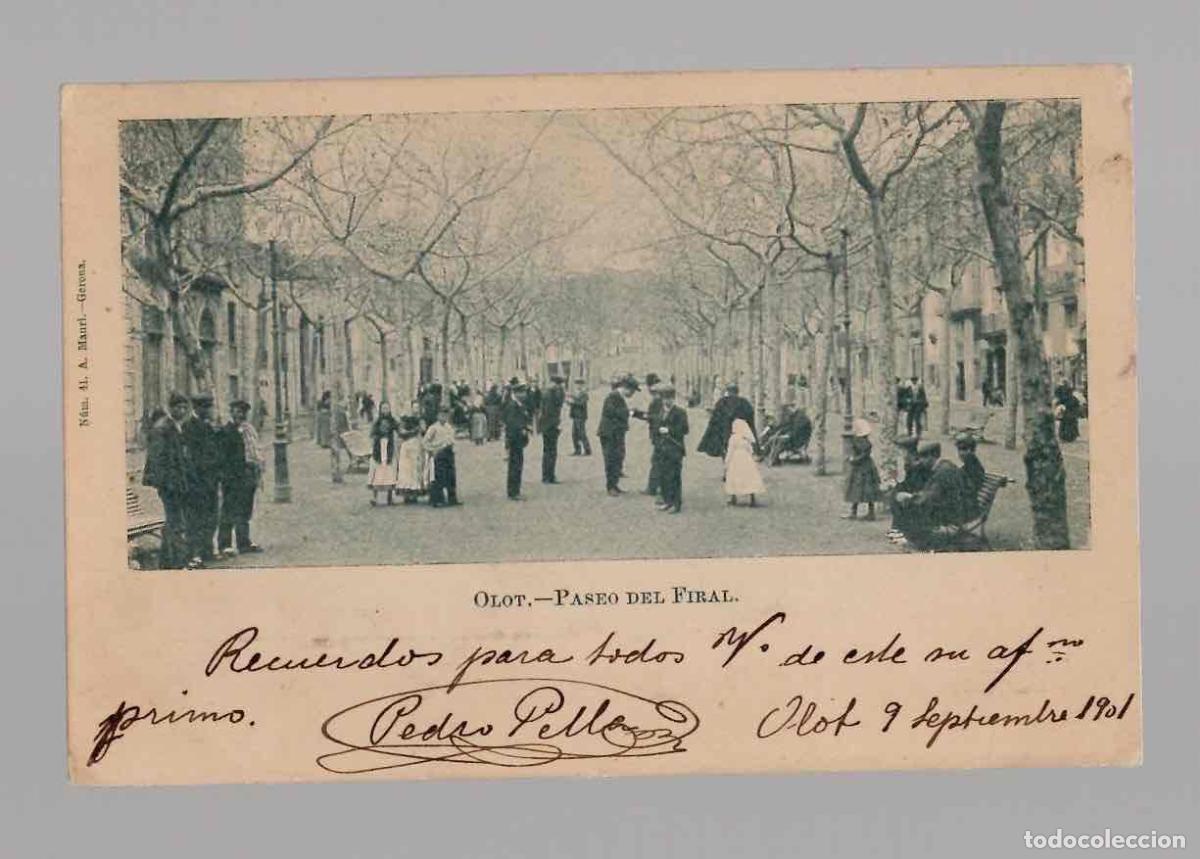 Núm. 41. A. Mauri.—Gerona.
OLOT.—PASEO DEL FIRAL.
Recuerdos para todos Vs. de este su afmo
primo. Pedro Pella Olot 9 Septiembre 1901
todocoleccion